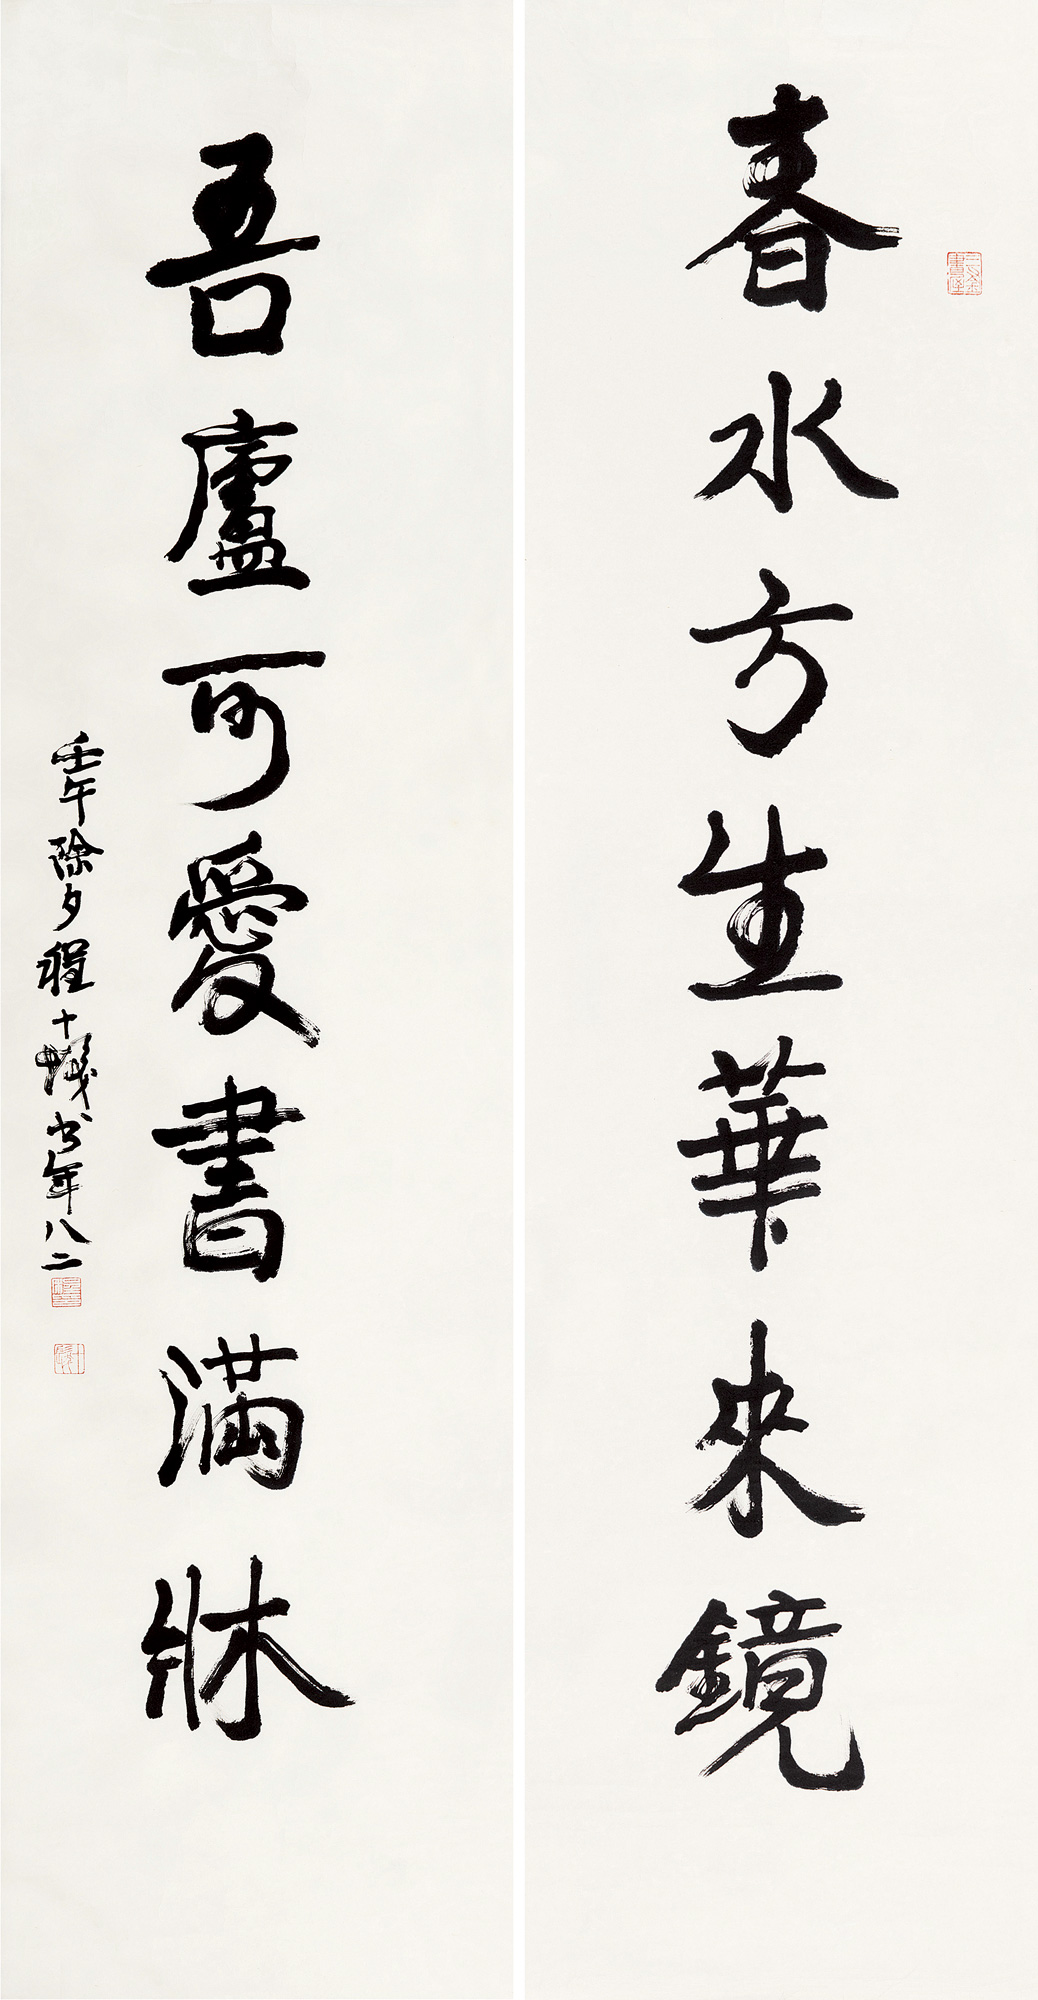 春水方生華來鏡
吾廬可愛書滿牀
壬午除夕程十髮書年八二